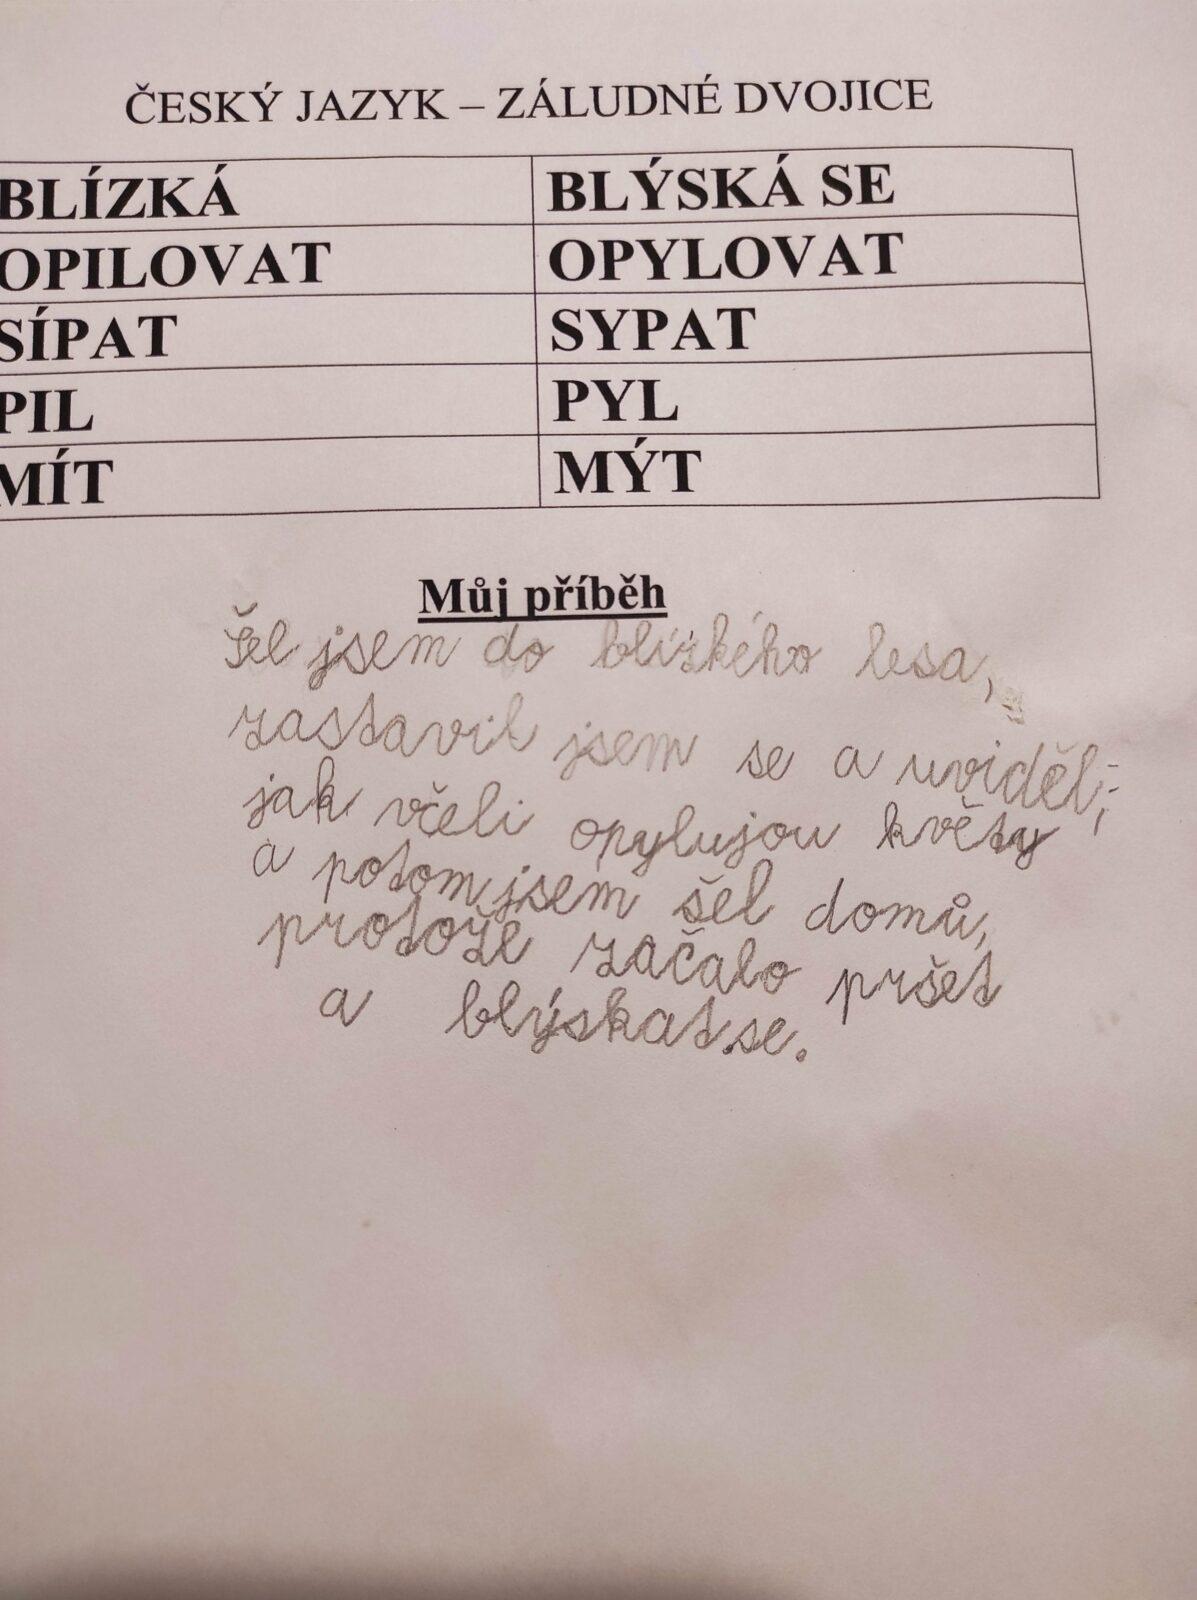 ČESKÝ JAZYK – ZÁLUDNÉ DVOJICE
BLÍZKÁ BLÝSKÁ SE
OPILOVAT OPYLOVAT
SÍPAT SYPAT
PIL PYL
MÍT MÝT
Můj příběh
Šel jsem do blízkého lesa,
zastavil jsem se a uviděl,
jak včeli opylujou květy
a potom jsem šel domů,
protože začalo pršet
a blýskat se.